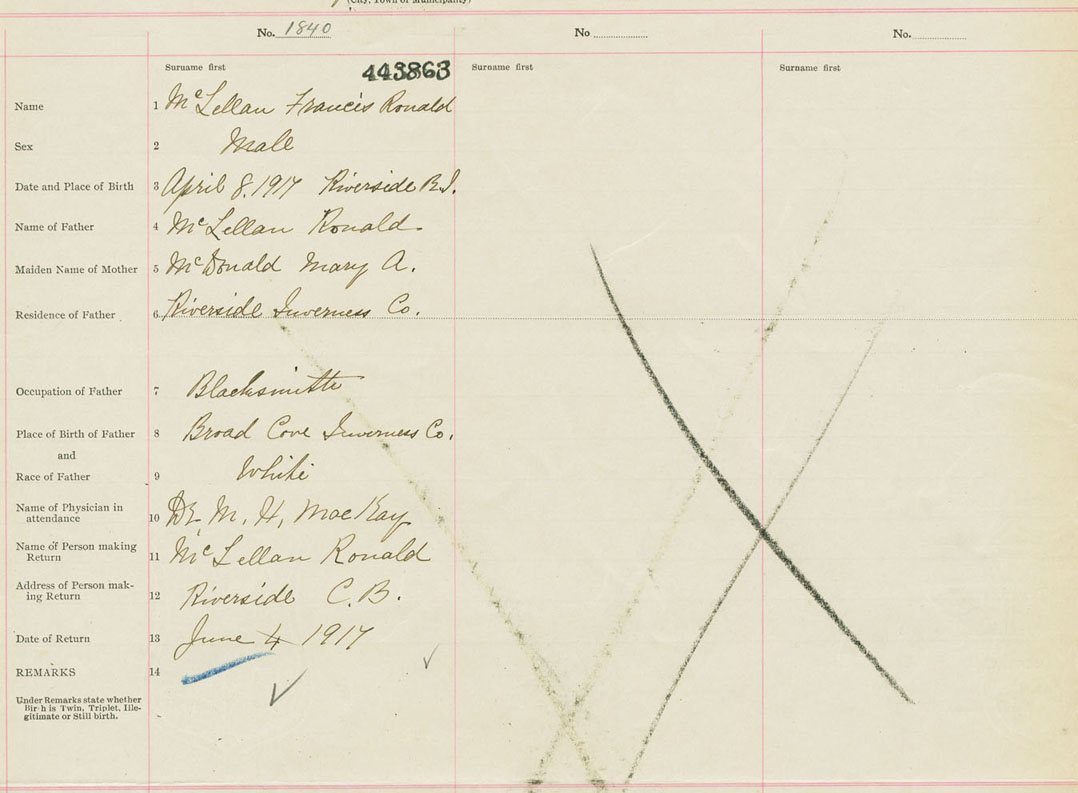 (City, Town or Municipality)
No. 1840
No
No.
Surname first
443863
Surname first
Surname first
Name 1 McLellan Francis Ronald
Sex 2 Male
Date and Place of Birth 3 April 8. 1917 Riverside B.I.
Name of Father 4 McLellan Ronald
Maiden Name of Mother 5 McDonald Mary A.
Residence of Father 6 Riverside Inverness Co.
Occupation of Father 7 Blacksmith
Place of Birth of Father 8 Broad Cove Inverness Co.
and
Race of Father 9 White
Name of Physician in
attendance 10 Dr M. H. MacKay
Name of Person making
Return 11 McLellan Ronald
Address of Person mak-
ing Return 12 Riverside C. B.
Date of Return 13 June 4 1917
REMARKS 14
Under Remarks state whether
Birth is Twin, Triplet, Ille-
gitimate or Still birth.